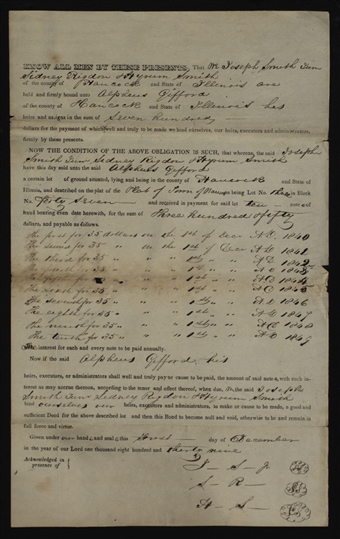 KNOW ALL MEN BY THESE PRESENTS, That We Joseph Smith Jun
Sidney Rigdon & Hyrum Smith
of the county of Hancock and State of Illinois are
held and firmly bound unto Alpheus Gifford
of the county of Hancock and State of Illinois his
heirs and assigns in the sum of Seven hundred
dollars for the payment of which well and truly to be made we bind ourselves, our heirs, executors and administrators,
firmly by these presents.
NOW THE CONDITION OF THE ABOVE OBLIGATION IS SUCH, that whereas, the said Joseph
Smith Jun Sidney Rigdon & Hyrum Smith
have this day sold unto the said Alpheus Gifford
a certain lot of ground situated, lying and being in the county of Hancock and State of
Illinois, and described on the plat of the Plat of Town of being Lot No. in Block
No. Forty Seven and required in payment for said lot ten notes of
hand bearing even date herewith, for the sum of Three hundred & fifty
dollars, and payable as follows
The first for 35 dollars on the 1st of Dec A.D. 1840
The second for 35 " on the 1st of Dec A.D. 1841
The third for 35 " " " 1st " " A.D. 1842
The fourth for 35 " " " 1st " " A.D. 1843
The for 35 " " " 1st " " A.D. 1844
The sixth for 35 " " " 1st " " A.D. 1845
The seventh for 35 " " " 1st " " A.D. 1846
The eighth for 35 " " " 1st " " A.D. 1847
The ninth for 35 " " " 1st " " A.D. 1848
The tenth for 35 " " " 1st " " A.D. 1849
The interest for each and every note to be paid annually.
Now if the said Alpheus Gifford, his
heirs, executors, or administrators shall well and truly pay or cause to be paid, the amount of said notes, with such in-
terest as may accrue thereon, according to the tenor and effect thereof, when due, the said Joseph
Smith Jun Sidney Rigdon & Hyrum Smith
bind ourselves, our heirs, executors and administrators, to make or cause to be made, a good and
sufficient Deed for the above described lot and then this Bond to become null and void, otherwise to be and remain in
full force and virtue.
Given under our hands and seals this first day of December
in the year of our Lord one thousand eight hundred and thirty nine
Acknowledged in
presence of
J - S - J
S - R -
H - S -